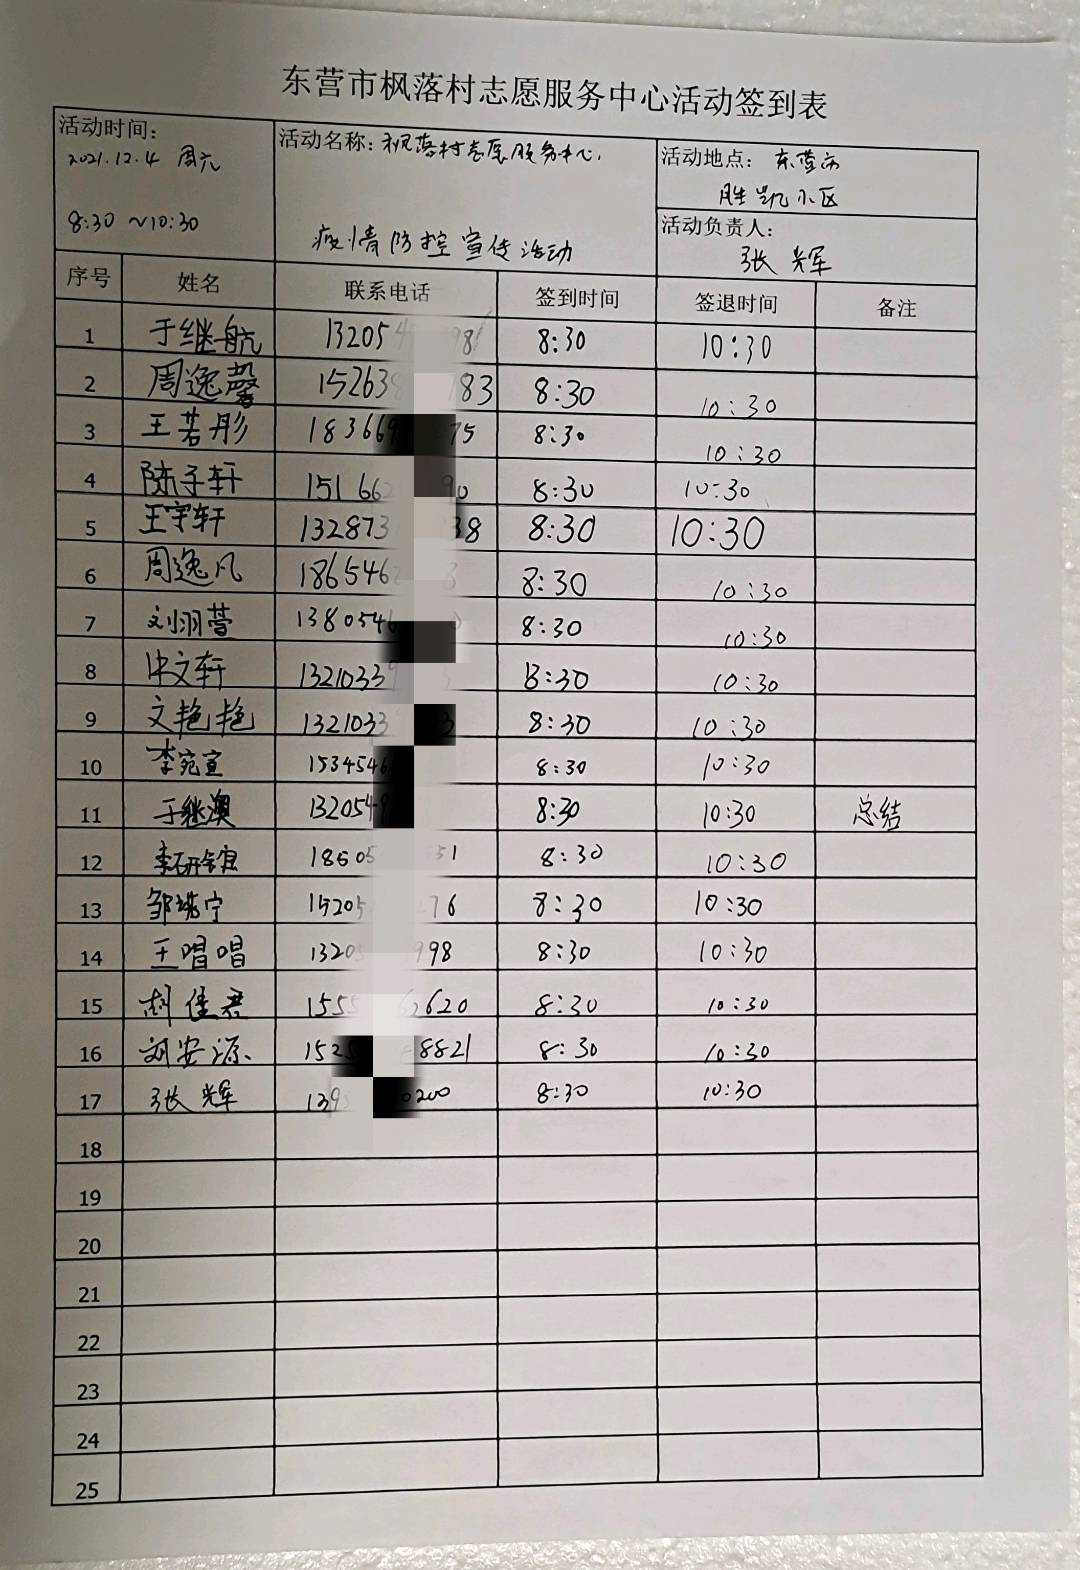 东营市枫落村志愿服务中心活动签到表
活动时间：
2021.12.4 周六
8:30 ~10:30
活动名称：枫落村志愿服务中心，
疫情防控宣传活动
活动地点： 东营市
胜凯小区
活动负责人：
张辉
序号 姓名 联系电话 签到时间 签退时间 备注
1 于继航 13205 98 8:30 10:30
2 周逸馨 15263 183 8:30 10:30
3 王若彤 183669 75 8:30 10:30
4 陈子轩 151 66 90 8:30 10:30
5 王宇轩 132873 38 8:30 10:30
6 周逸凡 186546 3 8:30 10:30
7 刘羽萱 1380546 8:30 10:30
8 文轩 1321033 8:30 10:30
9 文艳艳 1321033 3 8:30 10:30
10 李宛宣 1534546 8:30 10:30
11 于继澳 132054 8:30 10:30 总结
12 李研 1860 51 8:30 10:30
13 邹 宁 15205 76 8:30 10:30
14 王唱唱 1320 998 8:30 10:30
15 胡佳君 155 2620 8:30 10:30
16 刘安源 152 8821 8:30 10:30
17 张辉 139 0200 8:30 10:30
18
19
20
21
22
23
24
25